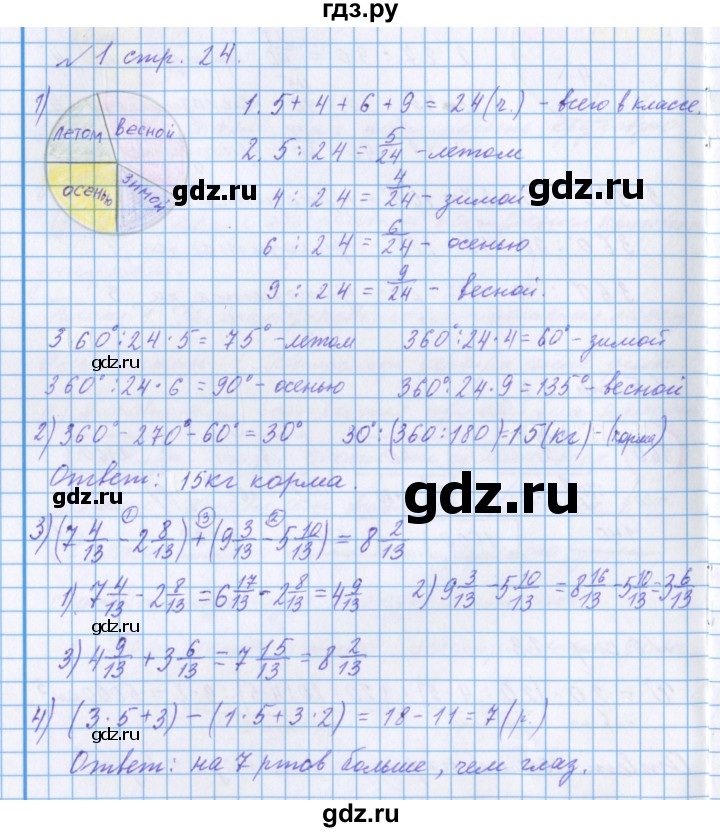 гдз.ру
№1 стр. 24.
1) 1. 5 + 4 + 6 + 9 = 24 (ч.) - всего в классе.
летом весной осенью зимой
2. 5 : 24 = 5/24 - летом
4 : 24 = 4/24 - зимой
gdz.ru gdz.ru
6 : 24 = 6/24 - осенью
9 : 24 = 9/24 - весной.
360° : 24 · 5 = 75° - летом 360° : 24 · 4 = 60° - зимой
gdz.ru
360° : 24 · 6 = 90° - осенью 360° : 24 · 9 = 135° - весной
2) 360° - 270° - 60° = 30° 30° : (360 : 180) = 15 (кг) - (корма)
gdz.ru
Ответ: 15 кг корма.
gdz.ru gdz.ru
① ③ ②
3) (7 4/13 - 2 8/13) + (9 3/13 - 5 10/13) = 8 2/13
1) 7 4/13 - 2 8/13 = 6 17/13 - 2 8/13 = 4 9/13 2) 9 3/13 - 5 10/13 = 8 16/13 - 5 10/13 = 3 6/13
3) 4 9/13 + 3 6/13 = 7 15/13 = 8 2/13
gdz.ru
4) (3 · 5 + 3) - (1 · 5 + 3 · 2) = 18 - 11 = 7 (р.)
gdz.ru
Ответ: на 7 ртов больше, чем глаз.
gdz.ru